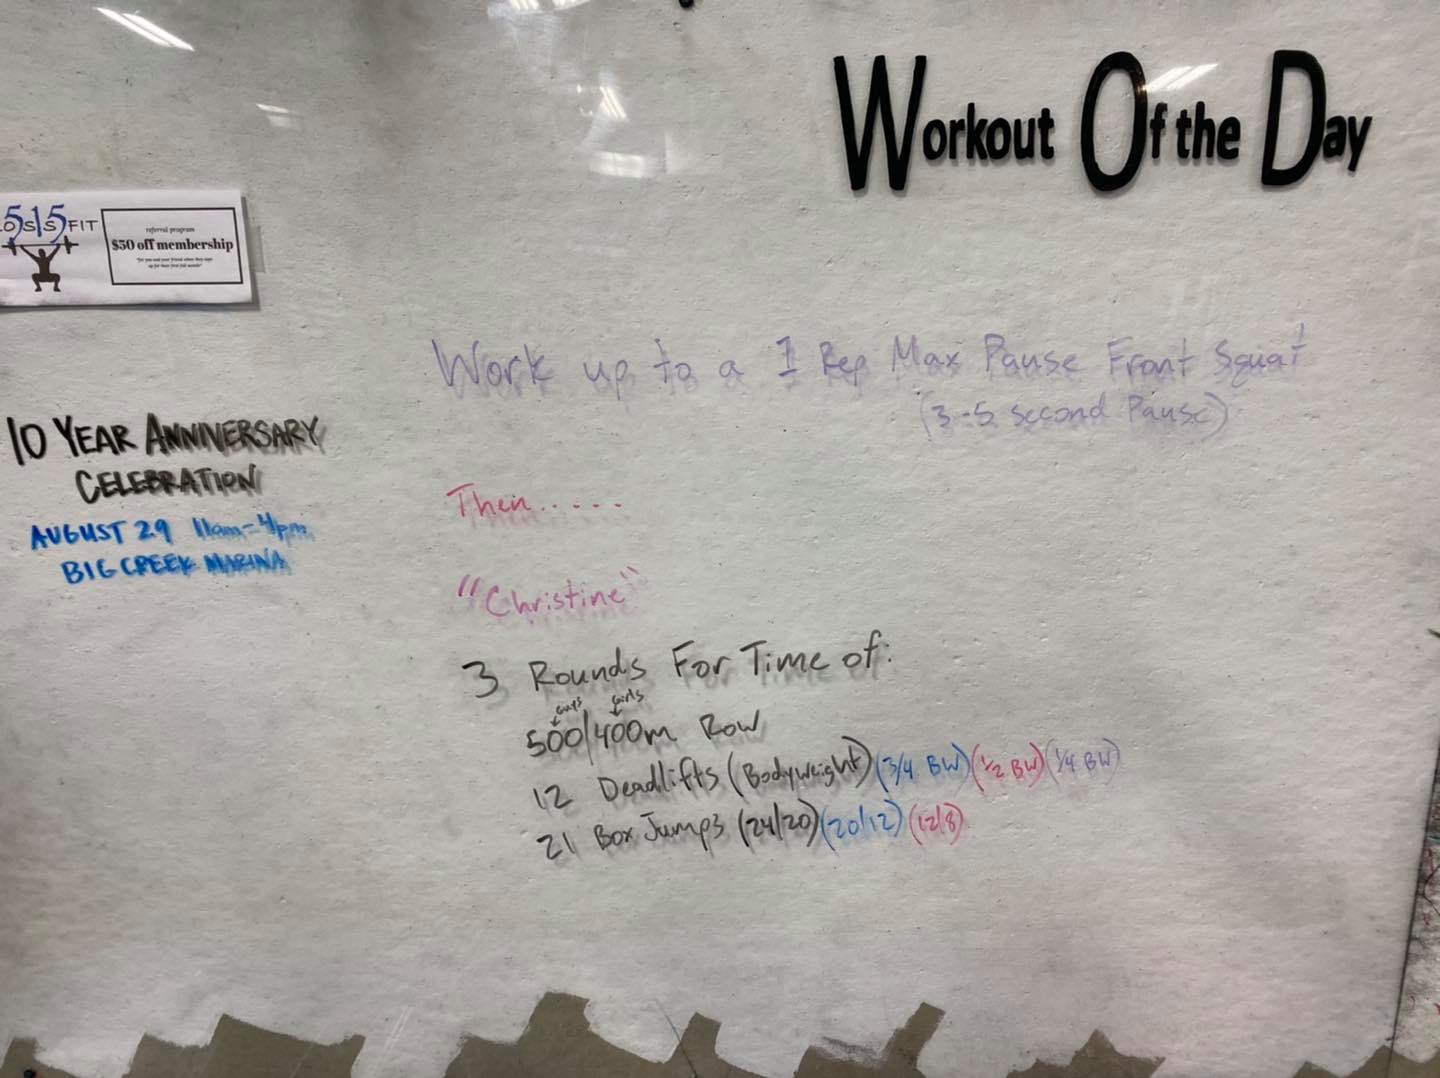 Workout Of the Day
515
OSSFIT
referral program
$50 off membership
*for you and your friend when they sign
up for their first full month*
Work up to a 1 Rep Max Pause Front Squat
(3-5 second Pause)
10 YEAR ANNIVERSARY
CELEBRATION
AUGUST 29 11am-4pm
BIG CREEK MARINA
Then.....
"Christine"
3 Rounds For Time of:
guys girls
500/400m Row
12 Deadlifts (Bodyweight) (3/4 BW) (1/2 BW) (1/4 BW)
21 Box Jumps (24/20) (20/12) (12/8)